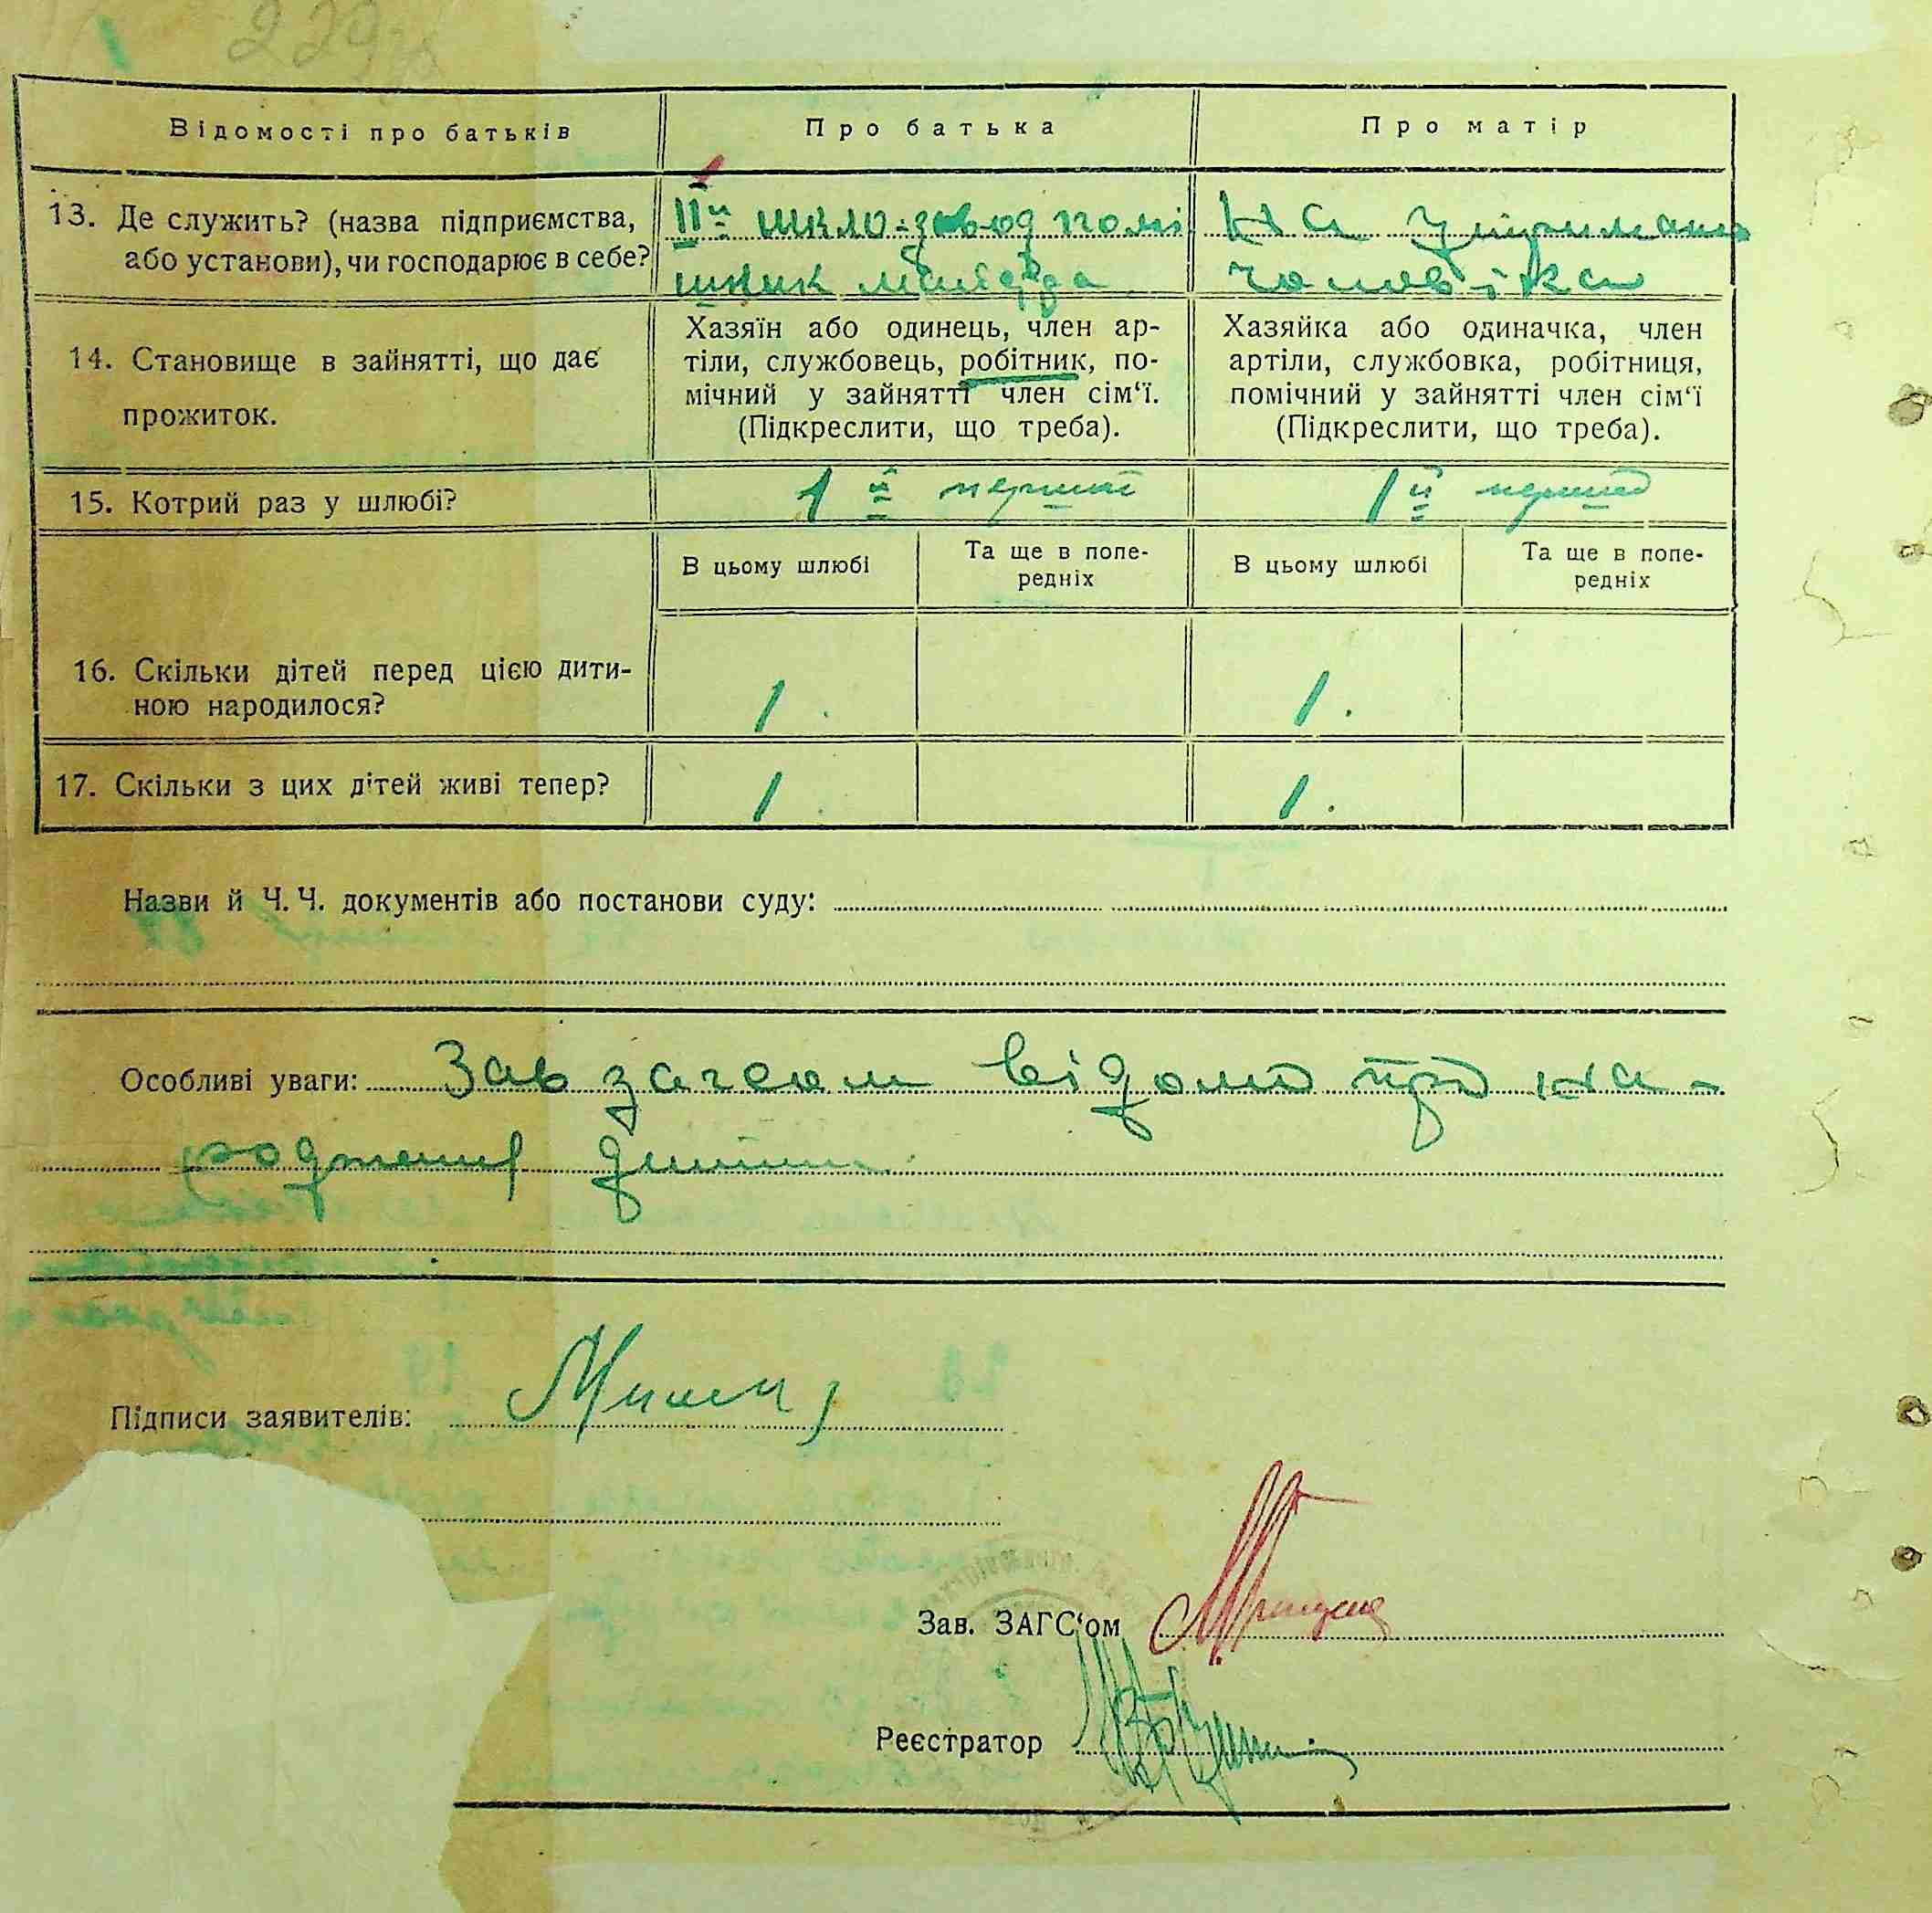 229
Відомості про батьків
Про батька
Про матір
13. Де служить? (назва підприємства,
або установи), чи господарює в себе?
ІІй шкло-завод помі
шник
На утриманні
чоловіка
14. Становище в зайнятті, що дає
прожиток.
Хазяїн або одинець, член ар-
тіли, службовець, робітник, по-
мічний у зайнятті член сім‘ї.
(Підкреслити, що треба).
Хазяйка або одиначка, член
артіли, службовка, робітниця,
помічний у зайнятті член сім‘ї
(Підкреслити, що треба).
15. Котрий раз у шлюбі?
1й перший
1й перший
В цьому шлюбі
Та ще в попе-
редніх
В цьому шлюбі
Та ще в попе-
редніх
16. Скільки дітей перед цією дити-
ною народилося?
1.
1.
17. Скільки з цих дітей живі тепер?
1.
1.
Назви й Ч. Ч. документів або постанови суду:
Особливі уваги: Зав загсом відомо про на-
родження дитини
Підписи заявителів:
Зав. ЗАГС‘ом
Реєстратор